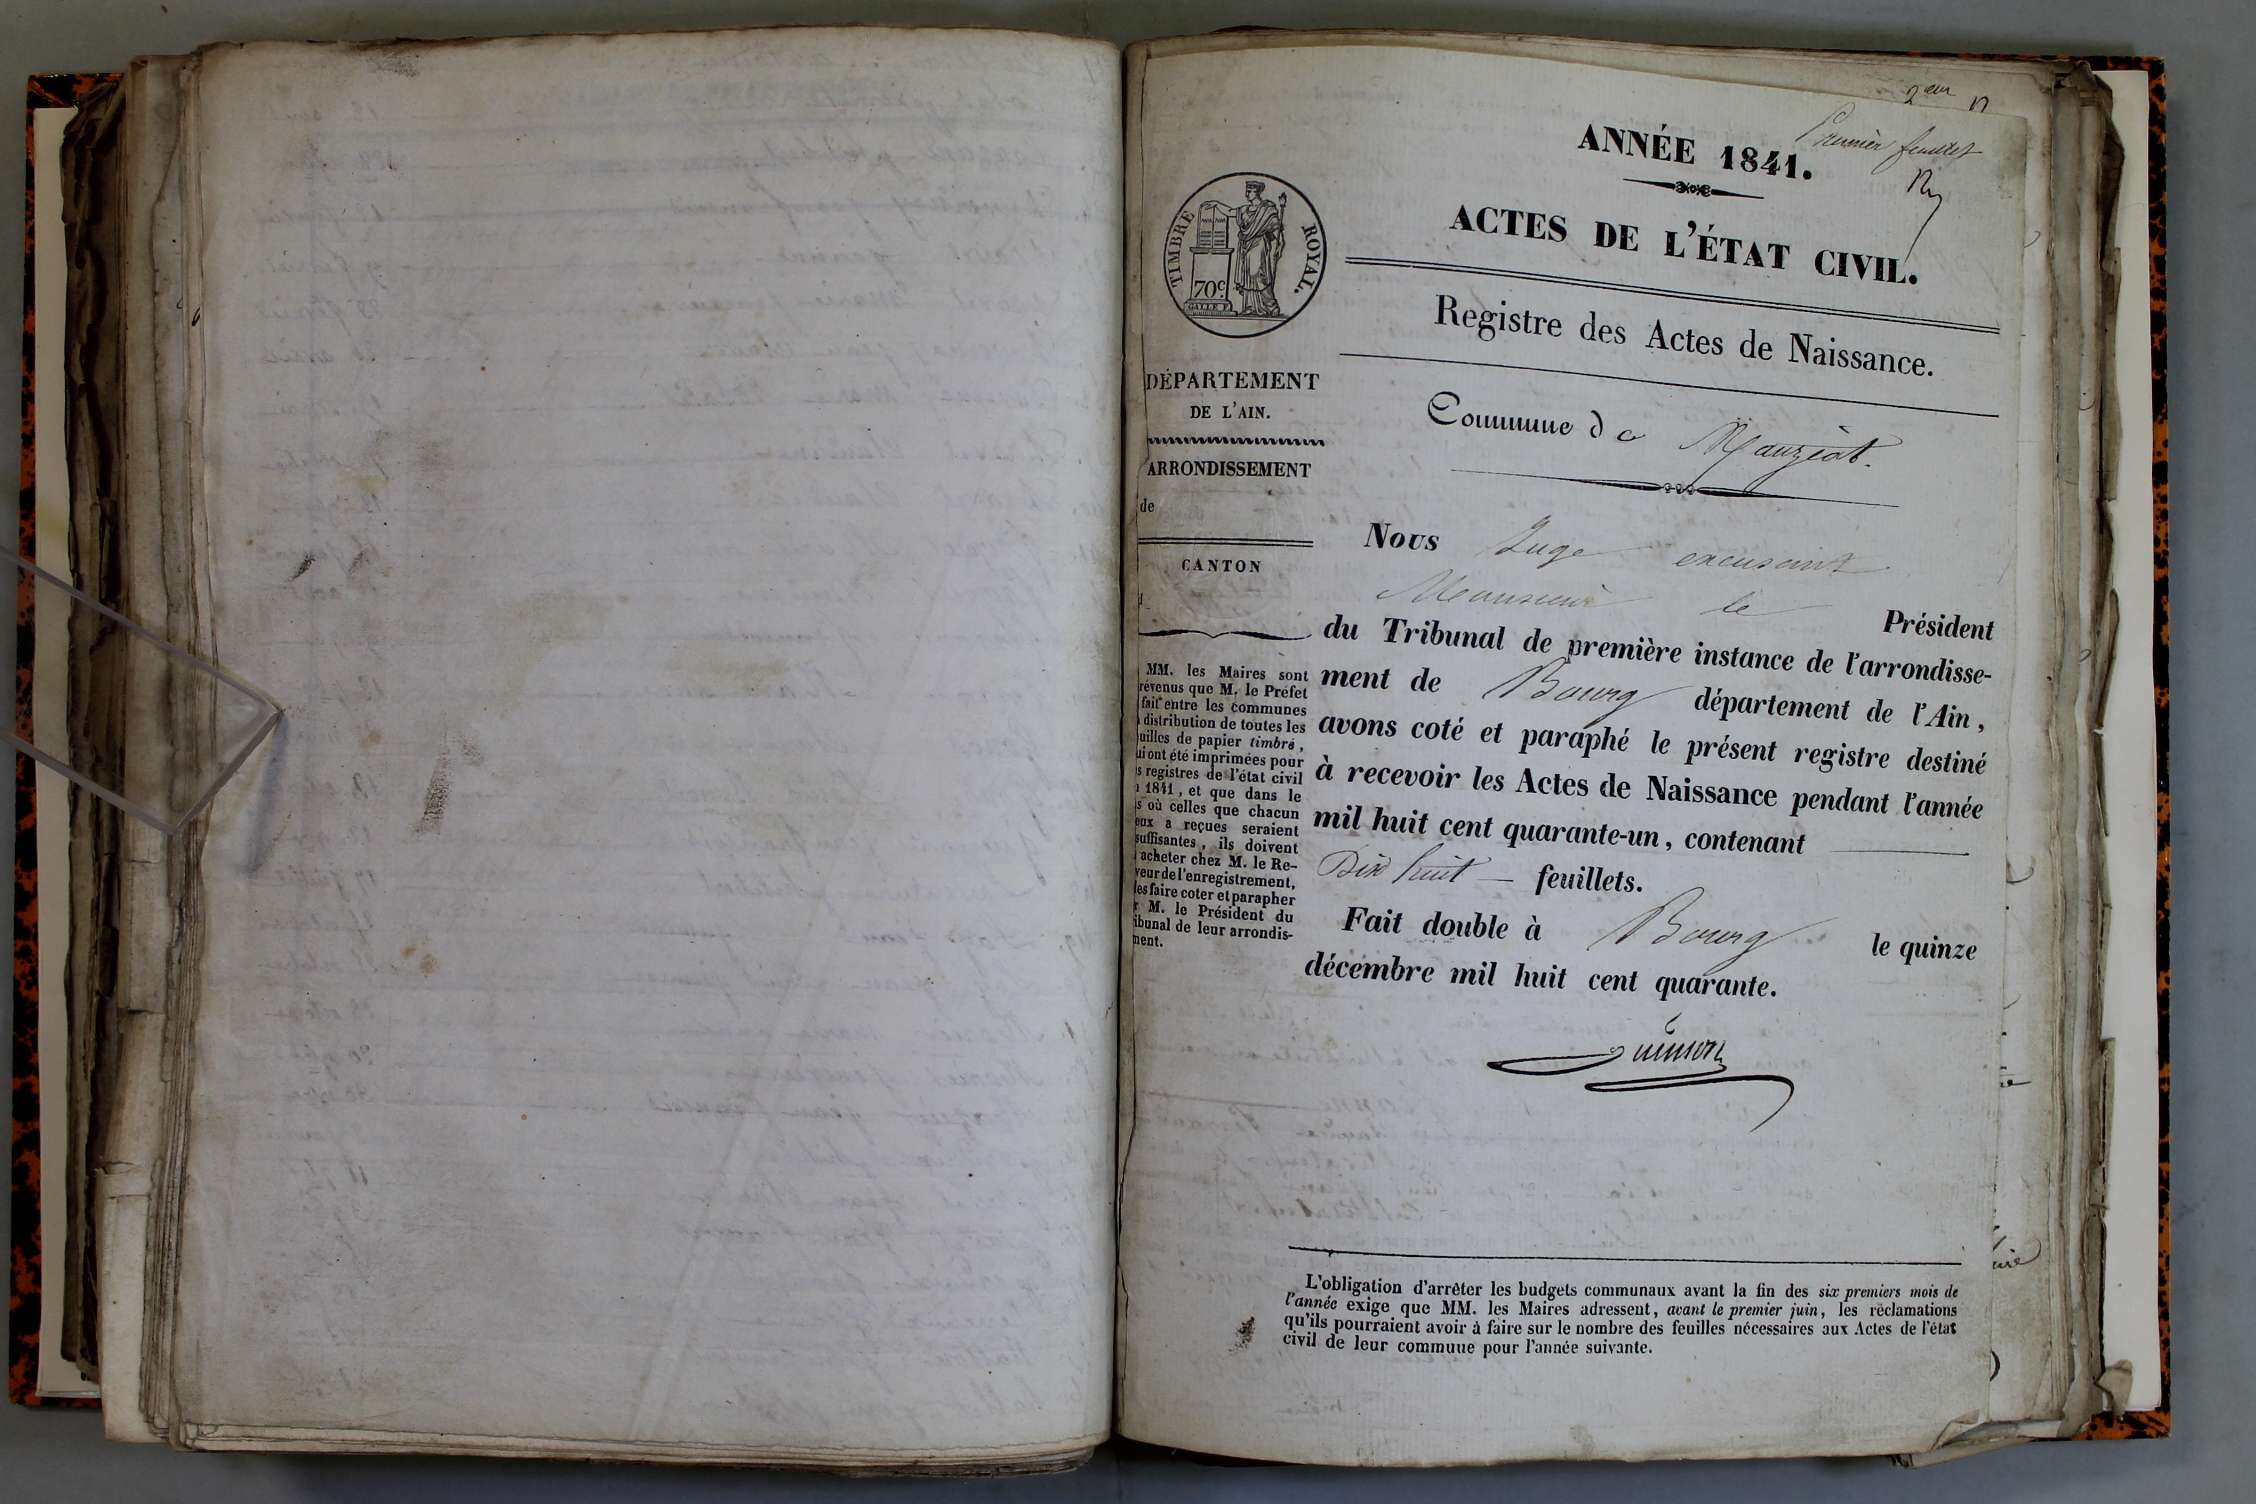 2em
Premier feuillet
ANNÉE 1841.
ACTES DE L'ÉTAT CIVIL.
TIMBRE ROYAL.
70c
Registre des Actes de Naissance.
DÉPARTEMENT
DE L'AIN.
ARRONDISSEMENT
de
CANTON
MM. les Maires sont
révenus que M. le Préfet
fait entre les communes
distribution de toutes les
uilles de papier timbré,
ui ont été imprimées pour
s registres de l'état civil
1841, et que dans le
s où celles que chacun
eux a reçues seraient
suffisantes, ils doivent
acheter chez M. le Re-
veur de l'enregistrement,
les faire coter et parapher
r M. le Président du
ibunal de leur arrondis-
ment.
Commune de Manziat.
Nous Juge excusant
Monsieur le Président
du Tribunal de première instance de l'arrondisse-
ment de Bourg département de l'Ain,
avons coté et paraphé le présent registre destiné
à recevoir les Actes de Naissance pendant l'année
mil huit cent quarante-un, contenant
Dix huit feuillets.
Fait double à Bourg le quinze
décembre mil huit cent quarante.
L'obligation d'arrêter les budgets communaux avant la fin des six premiers mois de
l'année exige que MM. les Maires adressent, avant le premier juin, les réclamations
qu'ils pourraient avoir à faire sur le nombre des feuilles nécessaires aux Actes de l'état
civil de leur commune pour l'année suivante.